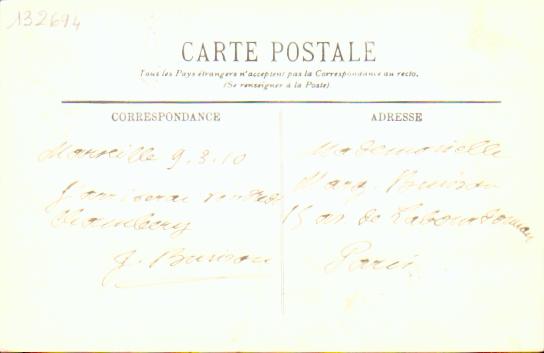 132694
CARTE POSTALE
Tous les Pays étrangers n'acceptent pas la Correspondance au recto.
(Se renseigner à la Poste)
CORRESPONDANCE
Marseille 9.3.10
J'arriverai
Chambery
J. Buisson
ADRESSE
Mademoiselle
Marg. Buisson
15 de
Paris